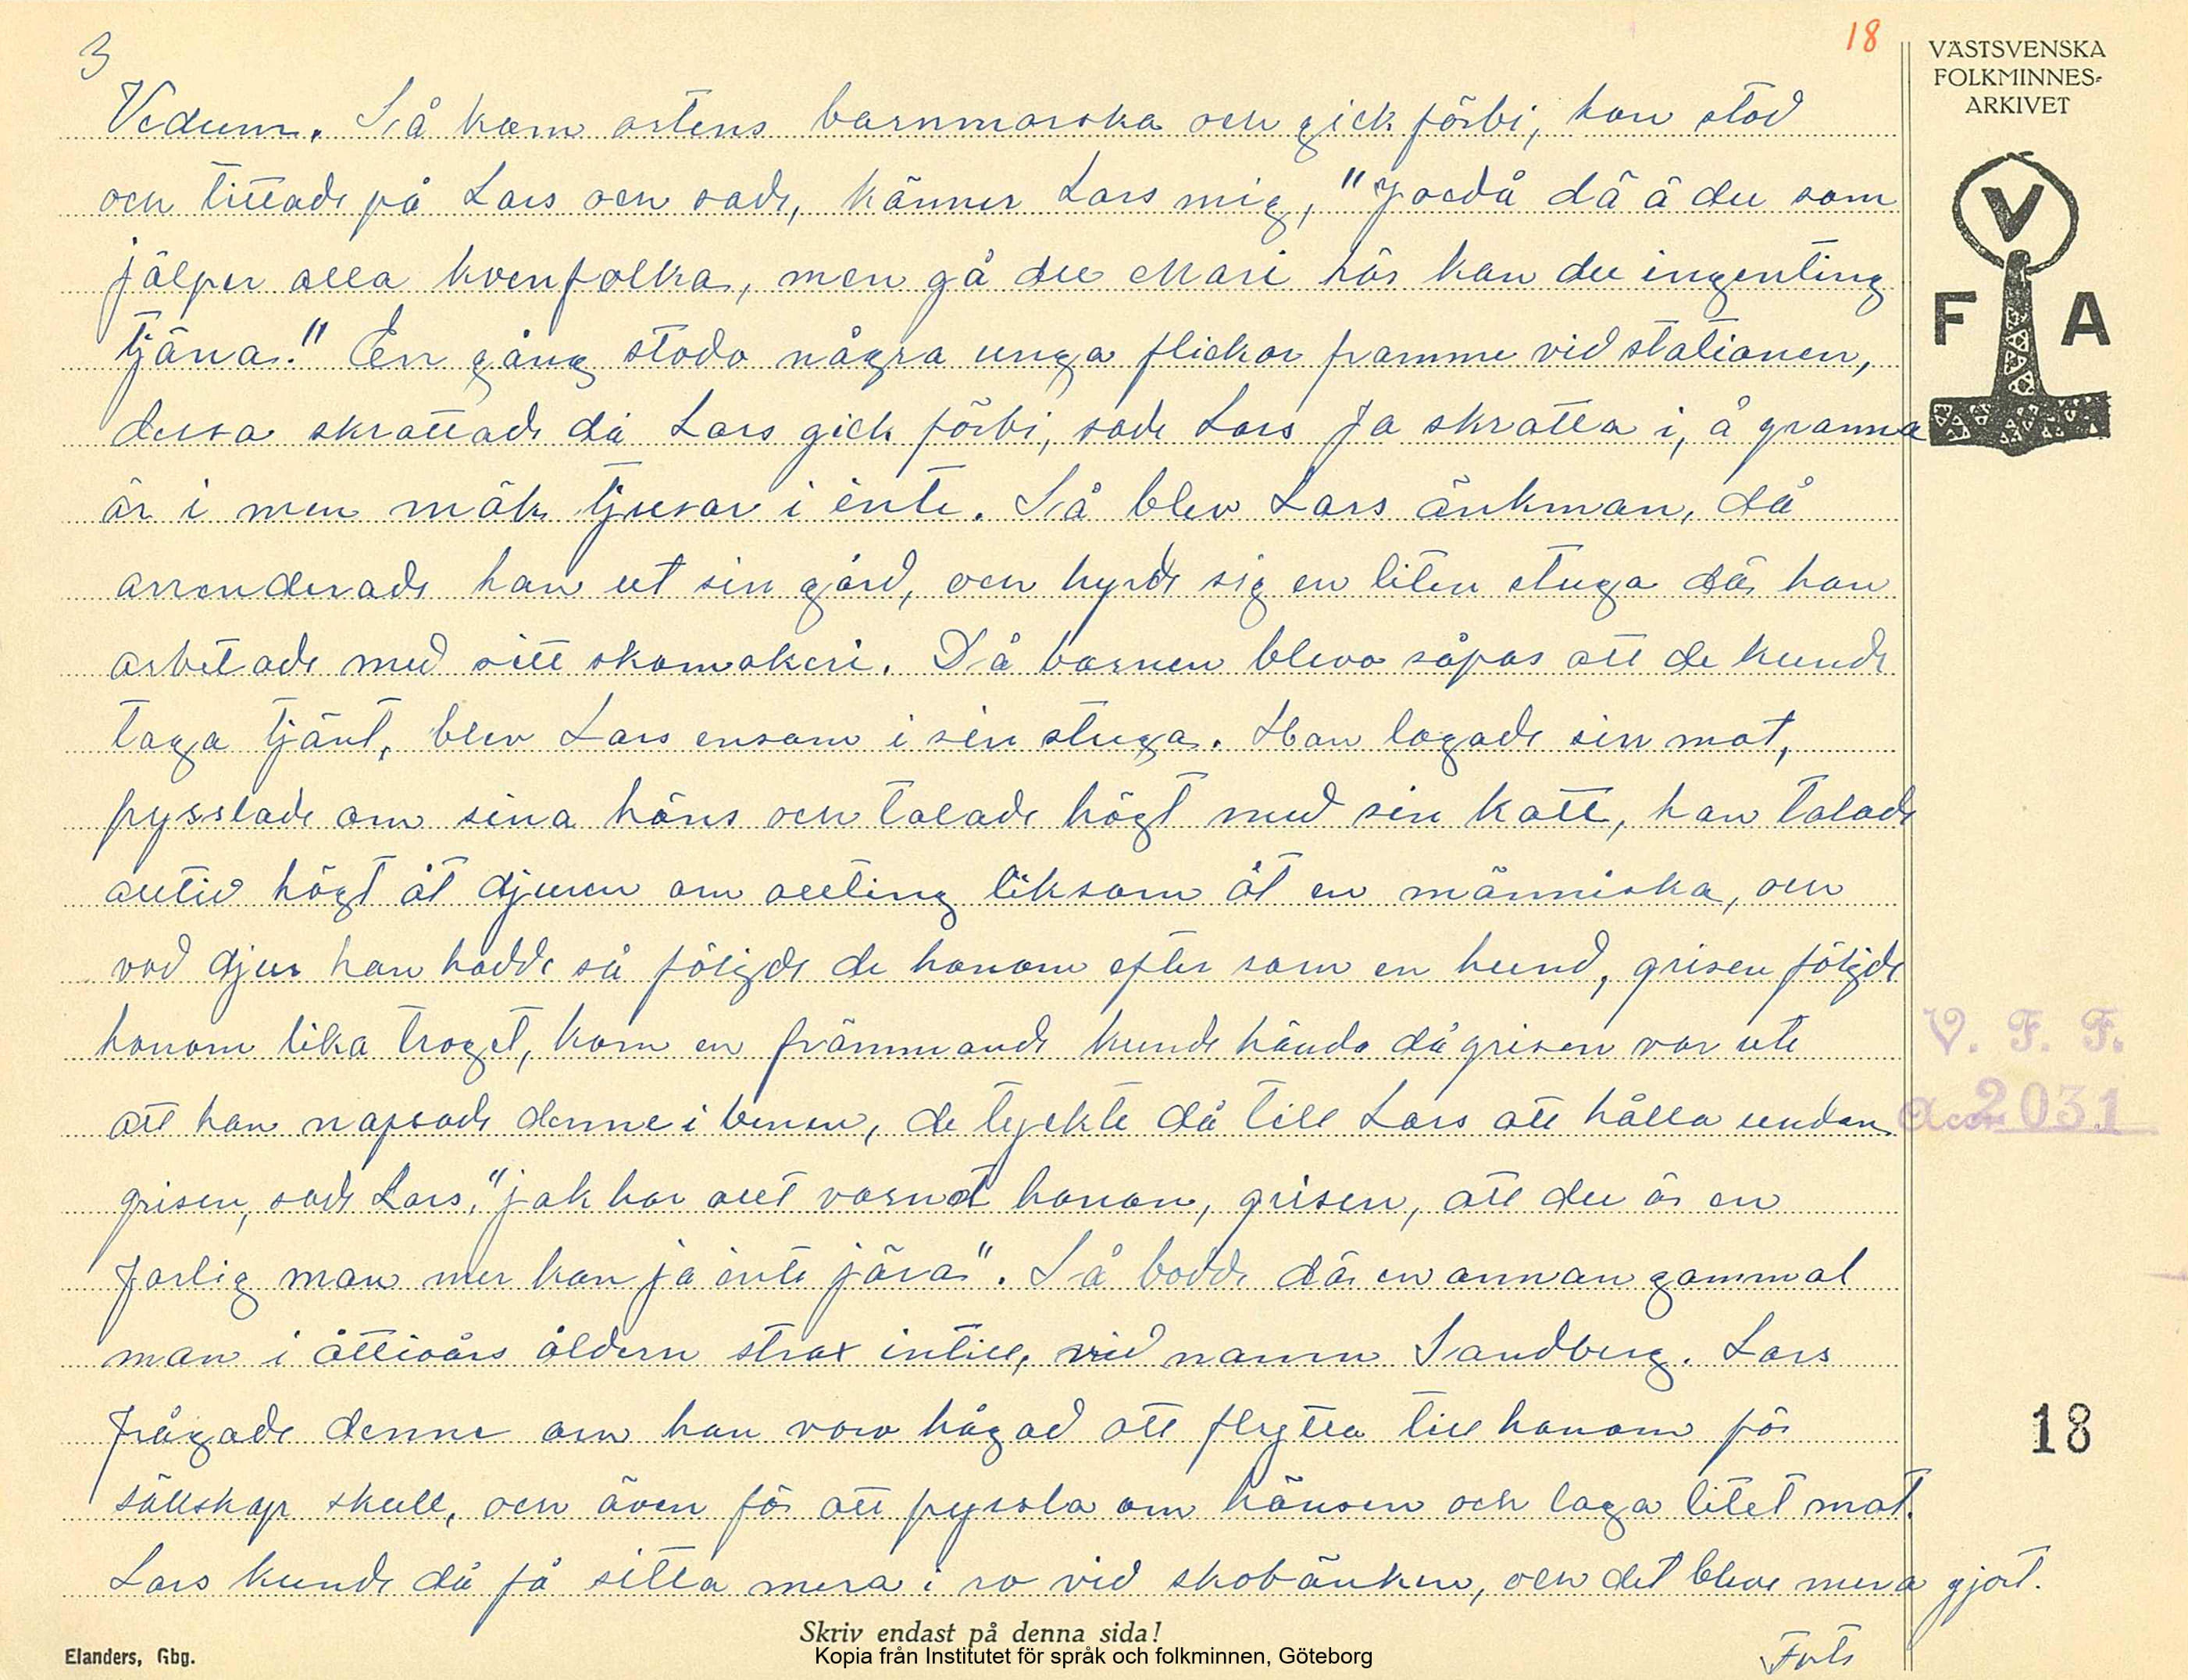 3
18
VÄSTSVENSKA
FOLKMINNES-
ARKIVET
V
F A
Vedum. Så kom ortens barnmorska och gick förbi, hon stod
och tittade på Lars och sade, känner Lars mig, "Joedå dä ä du som
jälper alla kvenfolka, men gå du Mari här kan du ingenting
tjäna." En gång stodo några unga flickor framme vid stationen,
dessa skrattade då Lars gick förbi, sade Lars Ja skratta i, å granna
är i men mäk tjusar i inte. Så blev Lars änkman, då
arrenderade han ut sin gård, och hyrde sig en liten stuga där han
arbetade med sitt skomakeri. Då barnen blevo såpas att de kunde
taga tjänt, blev Lars ensam i sin stuga. Han lagade sin mat,
pysslade om sina höns och talade högt med sin katt, han talade
alltid högt åt djuren om allting liksom åt en människa, och
vad djur han hadde så följde de honom efter som en hund, grisen följde
honom lika troget, kom en främmande kunde hända då grisen var ute
att han napsade denne i benen, de tyckte då till Lars att hålla undan
grisen, sade Lars, "jak har allt varnat honon, grisen, att du är en
farlig man mer kan ja inte jära". Så bodde där en annan gammal
man i åttioårs åldern strax intill, vid namn Sandberg. Lars
frågade denne om han vore hågad att flytta till honom för
sällskap skull, och även för att pyssla om hönsen och laga litet mat.
Lars kunde då få sitta mera i ro vid skobänken, och det bleve mera gjort.
Forts
V. F. F.
Acc. 2031
18
Skriv endast på denna sida!
Elanders, Gbg.
Kopia från Institutet för språk och folkminnen, Göteborg